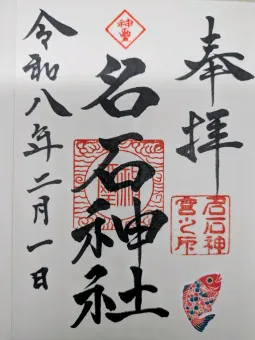 奉拝
名石神社
令和八年二月一日
名石神
宮之印